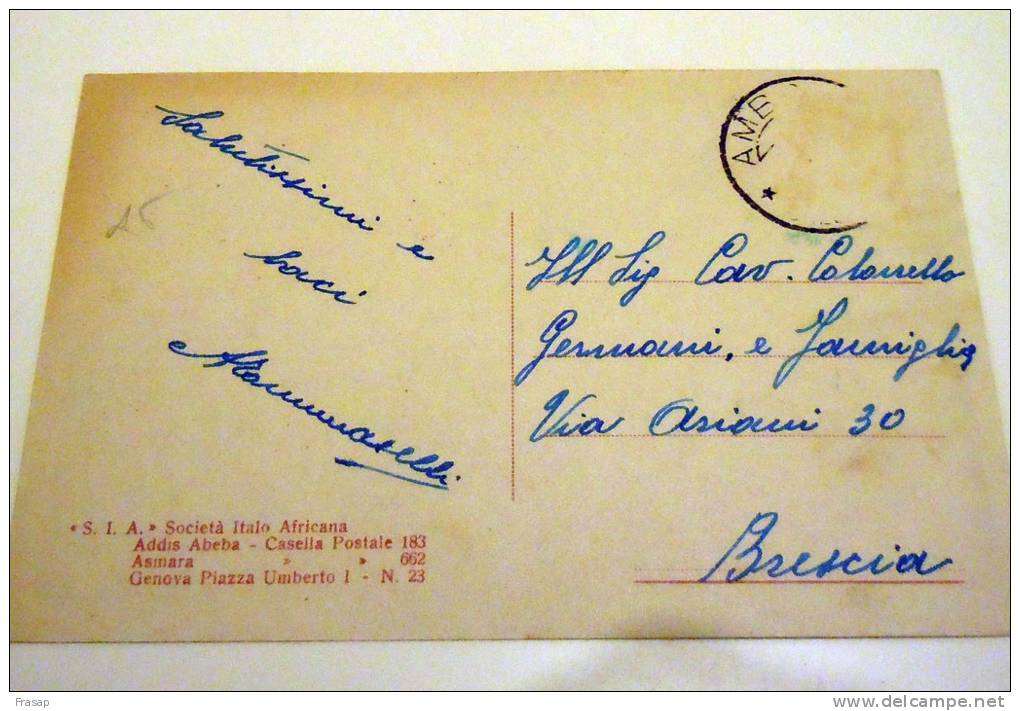 Salutissimi e
baci
AME
Ill Sig Cav. Colonnello
Germani, e Famiglia
Via Oriani 30
Brescia
« S. I. A. » Società Italo Africana
Addis Abeba - Casella Postale 183
Asmara » » 662
Genova Piazza Umberto I - N. 23
Frasap
delcampe.net